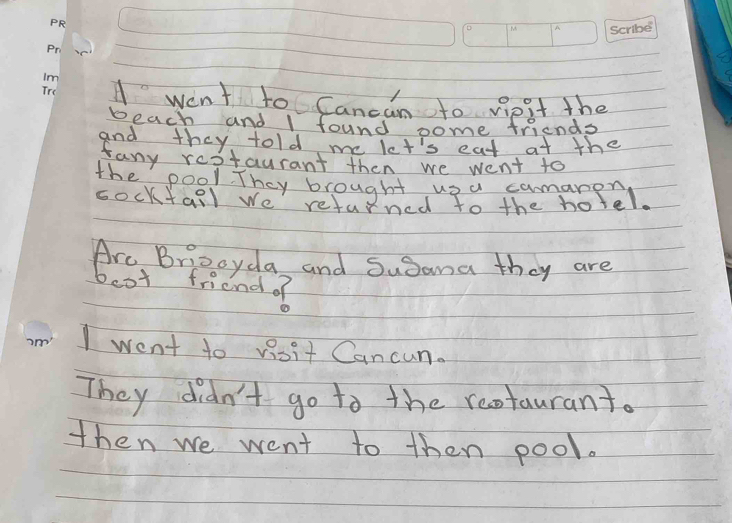 PR
Pr
Im
Tra
D M A
Scribe
I went to Cancún to visit the
beach and I found some friends
and they told me let's eat at the
fany restaurant then we went to
the pool They brought us a camaron
cocktail We returned to the hotel.
Are Brisayda and Susana they are
best friend?
I went to visit Cancun.
They didn't go to the restaurant.
then we went to then pool.